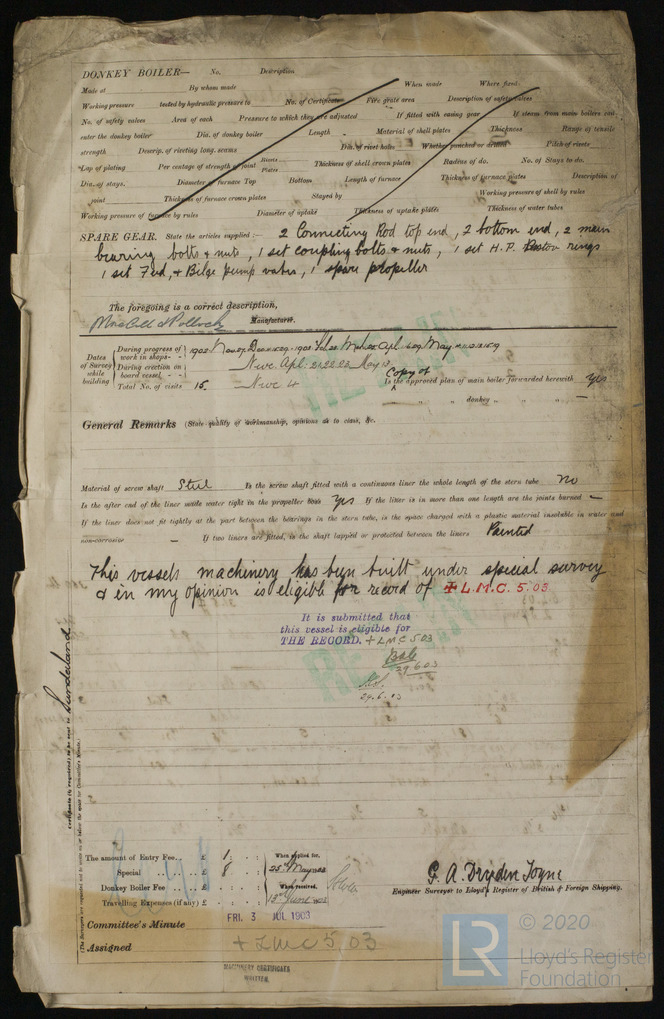 DONKEY BOILER— No. Description
Made at By whom made When made Where fixed
Working pressure tested by hydraulic pressure to No. of Certificate Fire grate area Description of safety valves
No. of safety valves Area of each Pressure to which they are adjusted If fitted with easing gear If steam from main boilers can
enter the donkey boiler Dia. of donkey boiler Length Material of shell plates Thickness Range of tensile
strength Descrip. of riveting long. seams Dia. of rivet holes Whether punched or drilled Pitch of rivets
Lap of plating Per centage of strength of joint Rivets Plates Thickness of shell crown plates Radius of do. No. of Stays to do.
Dia. of stays. Diameter of furnace Top Bottom Length of furnace Thickness of furnace plates Description of
joint Thickness of furnace crown plates Stayed by Working pressure of shell by rules
Working pressure of furnace by rules Diameter of uptake Thickness of uptake plates Thickness of water tubes
SPARE GEAR. State the articles supplied:— 2 Connecting Rod top end, 2 bottom end, 2 main
bearing bolts & nuts, 1 set coupling bolts & nuts, 1 set H.P. Piston rings
1 set Feed, & Bilge pump valves, 1 spare propeller
The foregoing is a correct description,
MacColl & Pollock Manufacturer.
Dates of Survey while building
During progress of work in shops - - 1902 Nov. 27. Dec.
During erection on board vessel - - - Nwc. Apl. 21.22.23. May 13
Total No. of visits 15. Nwc 4
Is the Copy of approved plan of main boiler forwarded herewith Yes
" " donkey " " " —
General Remarks (State quality of workmanship, opinions as to class, &c.
Material of screw shaft Steel Is the screw shaft fitted with a continuous liner the whole length of the stern tube No
Is the after end of the liner made water tight in the propeller boss Yes If the liner is in more than one length are the joints burned —
If the liner does not fit tightly at the part between the bearings in the stern tube, is the space charged with a plastic material insoluble in water and
non-corrosive — If two liners are fitted, is the shaft lapped or protected between the liners Painted
This vessels machinery has been built under special survey
& in my opinion is eligible for record of + L.M.C. 5.03
It is submitted that
this vessel is eligible for
THE RECORD. + LMC 5.03
29.6.03
29.6.03
Certificate (if required) to be sent to Sunderland
(The Surveyors are requested not to write on or below the space for Committee's Minute.)
The amount of Entry Fee.. £ 1 : : When applied for,
Special .. .. .. £ 8 : : 25th May 1903
Donkey Boiler Fee .. .. £ : : When received,
Travelling Expenses (if any) £ : : 13th June 1903
G. A. Dryden Toyne
Engineer Surveyor to Lloyd's Register of British & Foreign Shipping.
Committee's Minute FRI. 3 JUL 1903
Assigned + LMC 5.03
MACHINERY CERTIFICATE
WRITTEN.
LR © 2020
Lloyd's Register
Foundation